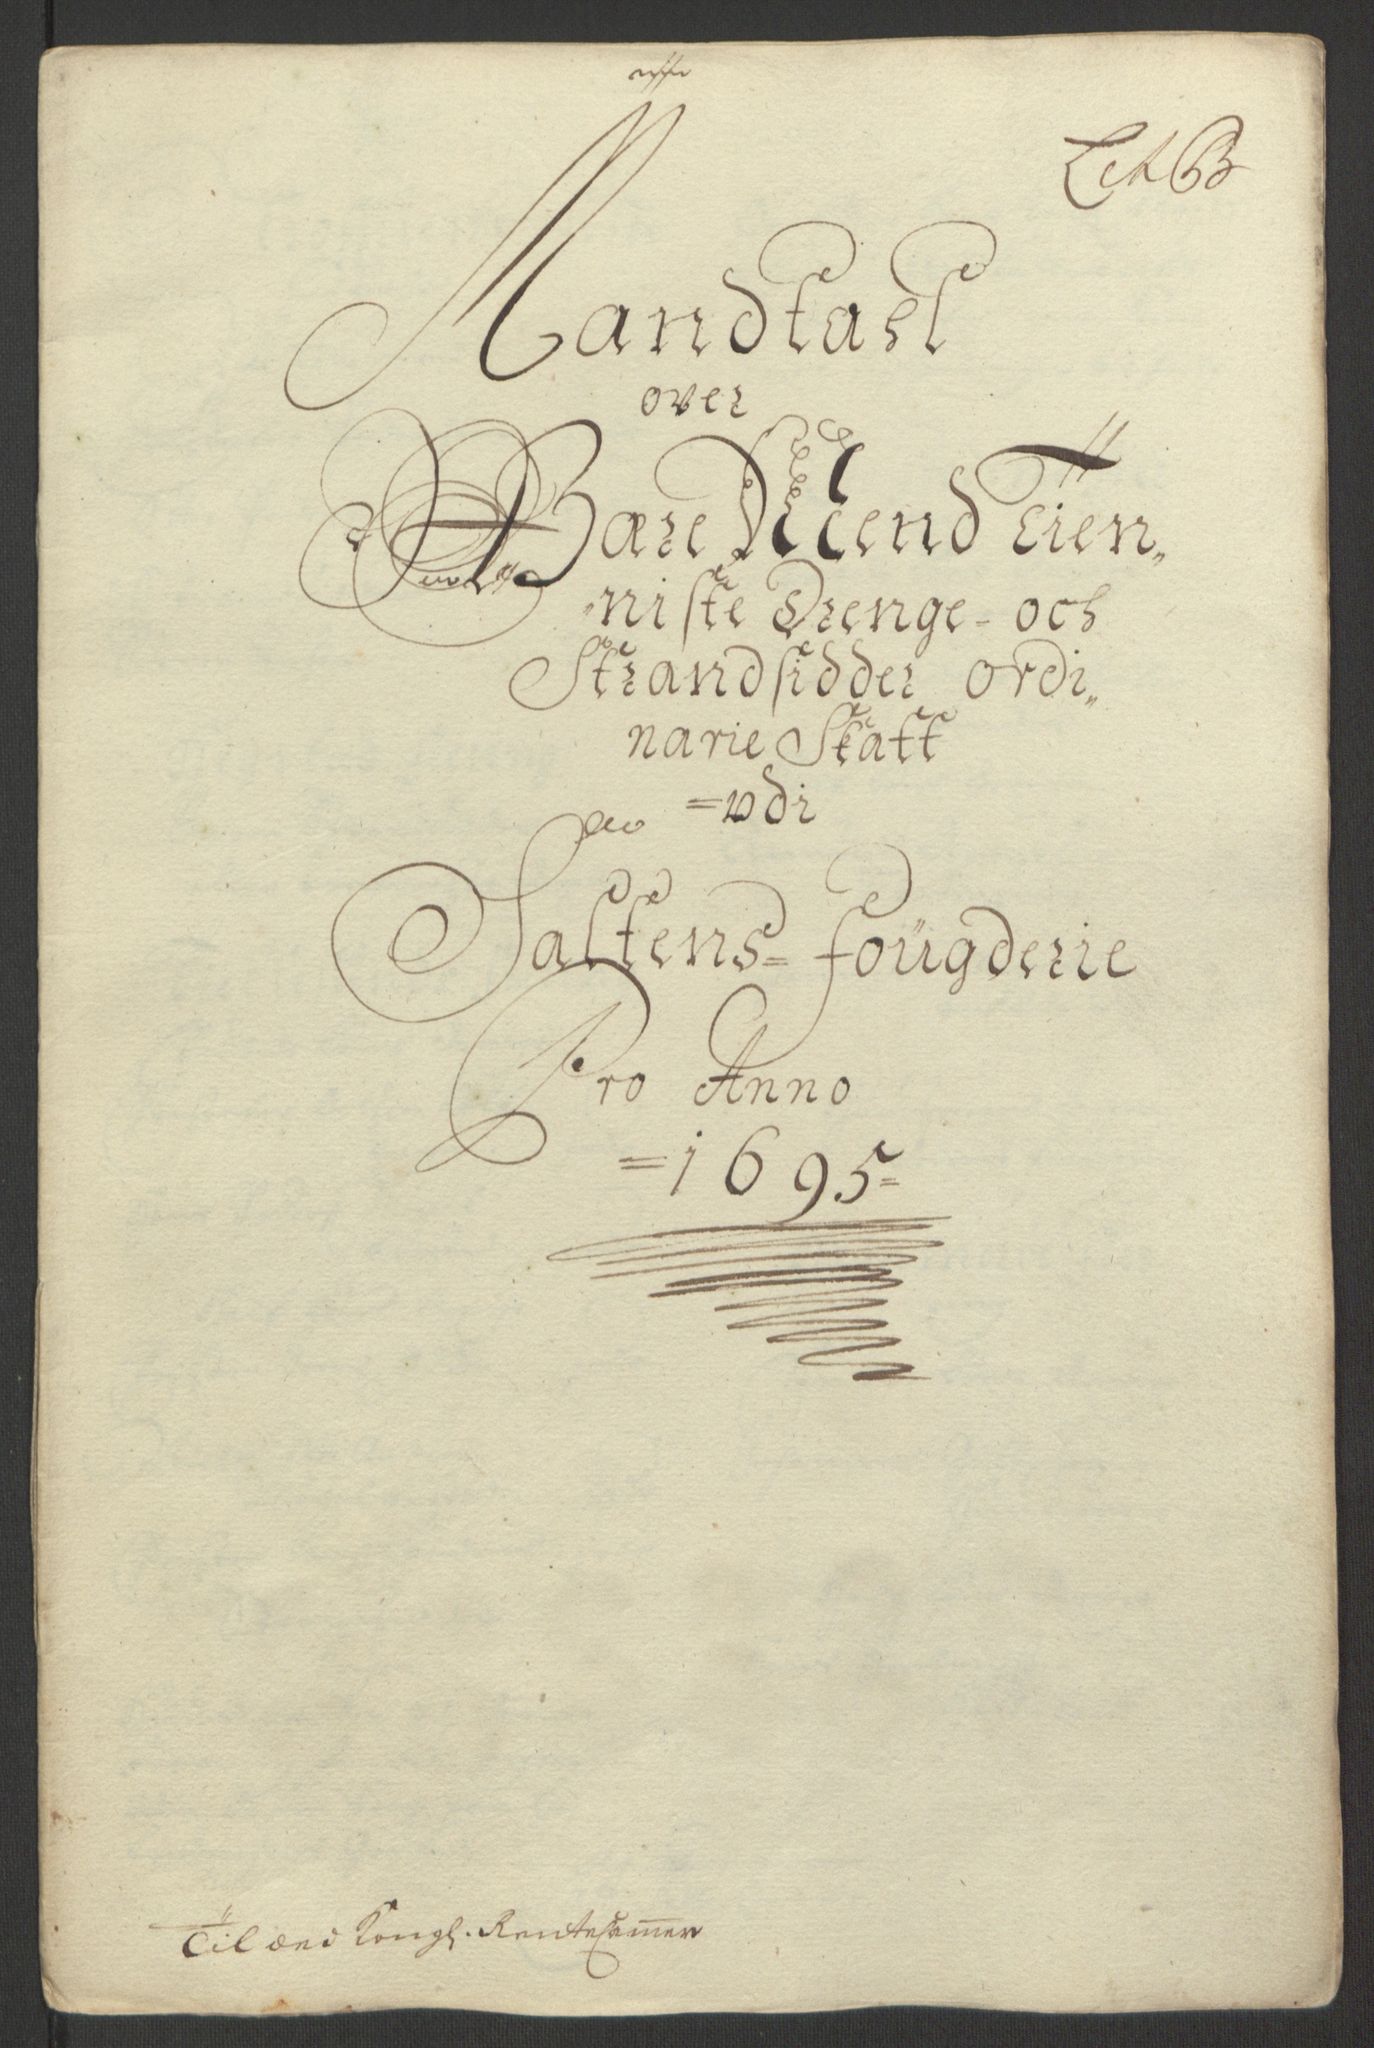 Lit B
Mandtael
over
Bare Mend Tien„
„niste Drenge- och
Strandsidder ordi„
narie Skatt
=udi
Saltens= foügderie
Pro Anno
=1695=
Til ded Kongl. Rentecammer